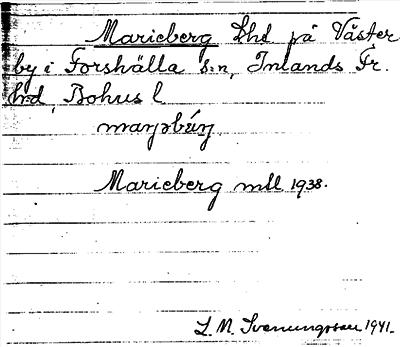 Marieberg Lhl på Väster
by i Forshälla s:n, Inlands Fr.
hd, Bohus l
Marieberg mtl 1938.
S. M. Svenungsson 1941.